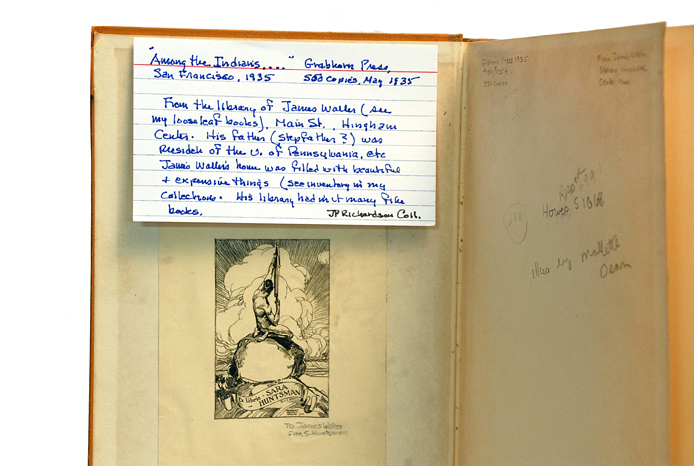 "Among the Indians....." Grabhorn Press,
San Francisco, 1935 500 copies, May 1835
From the library of James Waller (see
my looseleaf books), Main St., Hingham
Center. His father (stepfather?) was
President of the U. of Pennsylvania, etc
James Waller's home was filled with beautiful
+ expensive things (see inventory in my
collections. His library had in it many fine
books. JP Richardson Coll.
Ex Libris SARA
HUNTSMAN
TO JAMES WALLER
FROM S. HUNTSMAN
Press 1935
From James
Howes, S1868
illus by Mallette
Dean